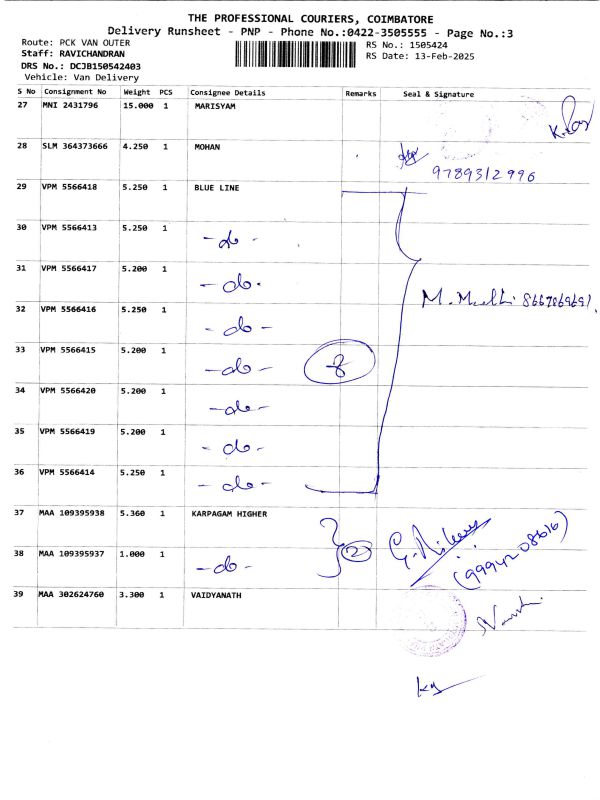 THE PROFESSIONAL COURIERS, COIMBATORE
Delivery Runsheet - PNP - Phone No.:0422-3505555 - Page No.:3
Route: PCK VAN OUTER
Staff: RAVICHANDRAN
DRS No.: DCJB150542403
Vehicle: Van Delivery
RS No.: 1505424
RS Date: 13-Feb-2025
S No Consignment No Weight PCS Consignee Details Remarks Seal & Signature
27 MNI 2431796 15.000 1 MARISYAM
28 SLM 364373666 4.250 1 MOHAN 9789312996
29 VPM 5566418 5.250 1 BLUE LINE
30 VPM 5566413 5.250 1 -do-
31 VPM 5566417 5.200 1 -do-
32 VPM 5566416 5.250 1 -do- 8667869691
33 VPM 5566415 5.200 1 -do- 8
34 VPM 5566420 5.200 1 -do-
35 VPM 5566419 5.200 1 -do-
36 VPM 5566414 5.250 1 -do-
37 MAA 109395938 5.360 1 KARPAGAM HIGHER
38 MAA 109395937 1.000 1 -do- 2 (99942-08616)
39 MAA 302624760 3.300 1 VAIDYANATH